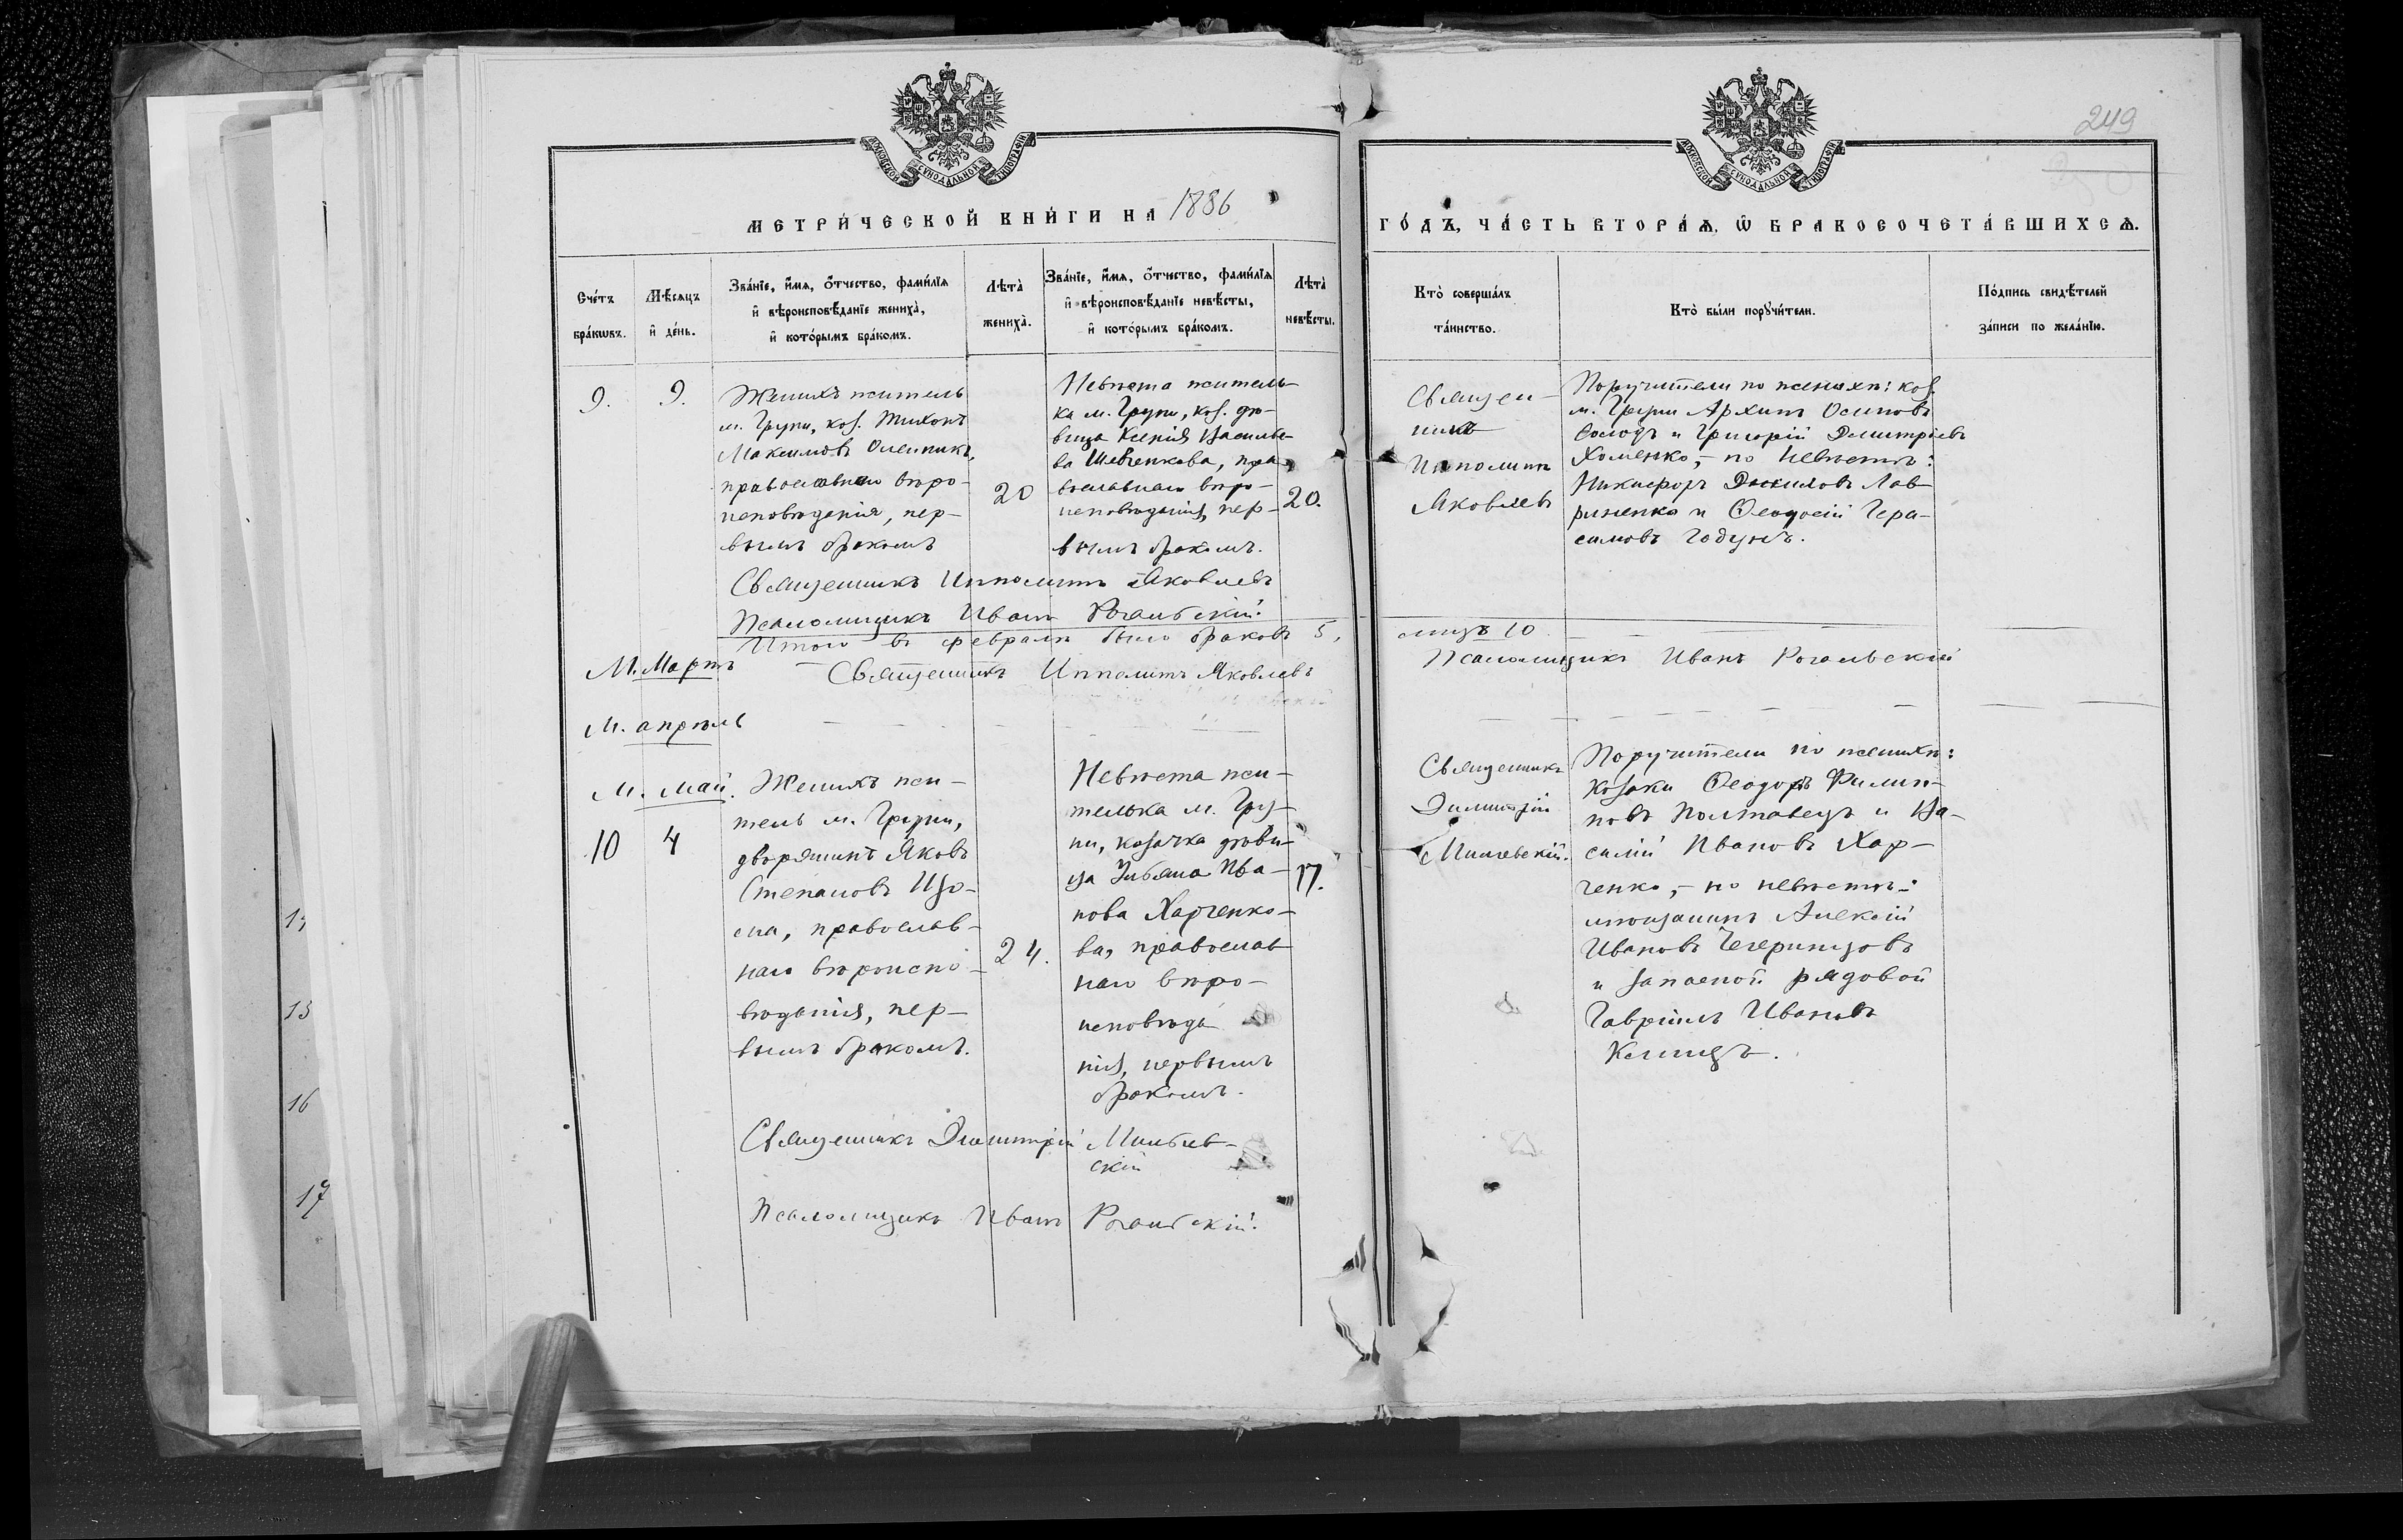 249
МЕТРИ́ЧЕСКОЙ КНИ́ГИ НА 1886
ГО́ДЪ, ЧА́СТЬ ВТОРА́Ѧ, Ѡ БРАКОСОЧЕТА́ВШИХСѦ.
Сче́тъ
бра́кѡвъ.
Мѣ́сѧцъ
и҆ де́нь.
Зва́нїе, и҆́мѧ, ѻ҆́тчество, фами́лїѧ
и҆ вѣроисповѣ́данїе жениха̀,
и҆ кото́рымъ бра́комъ.
Лѣта̀
жениха̀.
Зва́нїе, и҆́мѧ, ѻ҆́тчество, фами́лїѧ
и҆ вѣроисповѣ́данїе невѣ́сты,
и҆ кото́рымъ бра́комъ.
Лѣта̀
невѣ́сты.
Кто̀ соверша́лъ
та́инство.
Кто̀ бы́ли порꙋчи́тели.
По́дпись свидѣ́телей
за́писи по жела́нїю.
9.
9.
Женихъ житель
м. Груни, коз. Тихонъ
Максимовъ Олейникъ,
православнаго вѣро-
исповѣданія, пер-
вымъ бракомъ
20
Невѣста житель-
ка м. Груни, коз. дѣ-
вица Ксенія Василье-
ва Шевченкова, пра-
вославнаго вѣро-
исповѣданія, пер-
вымъ бракомъ.
20.
Священ-
никъ
Ипполитъ
Яковлевъ
Поручители по женихѣ: коз.
м. Груни Архипъ Осиповъ
Солодъ и Григорій Димитріевъ
Хоменко, - по невѣстѣ:
Никифоръ Даниловъ Лав-
риненко и Ѳеодосій Гера-
симовъ Годунъ.
Священникъ Ипполитъ Яковлевъ
Псаломщикъ Иванъ Рогальскій.
Итого въ февралѣ было браковъ 5,
лицъ 10
М. Мартъ
Священникъ Ипполитъ Яковлевъ
Псаломщикъ Иванъ Рогальскій
М. апрѣль
М. май.
10
4
Женихъ жи-
тель м. Груни,
дворянинъ Яковъ
Степановъ
православ-
наго вѣроиспо-
вѣданія, пер-
вымъ бракомъ.
24.
Невѣста жи-
телька м. Гру-
ни, козачка дѣви-
ца Ульяна Ива-
нова Харченко-
ва, православ
наго вѣро-
исповѣда
нія, первымъ
бракомъ.
17.
Священникъ
Димитрій
Поручители по женихѣ:
козаки Ѳеодоръ Филип-
повъ Полтавецъ и Ва-
силій Ивановъ Хар-
ченко, - по невѣстѣ:
мѣщанинъ Алексій
Ивановъ Чегринцовъ
и запасной рядовой
Гавріилъ Ивановъ
Священникъ Димитрій
скій
Псаломщикъ Иванъ Рогальскій.
13
15
16
17